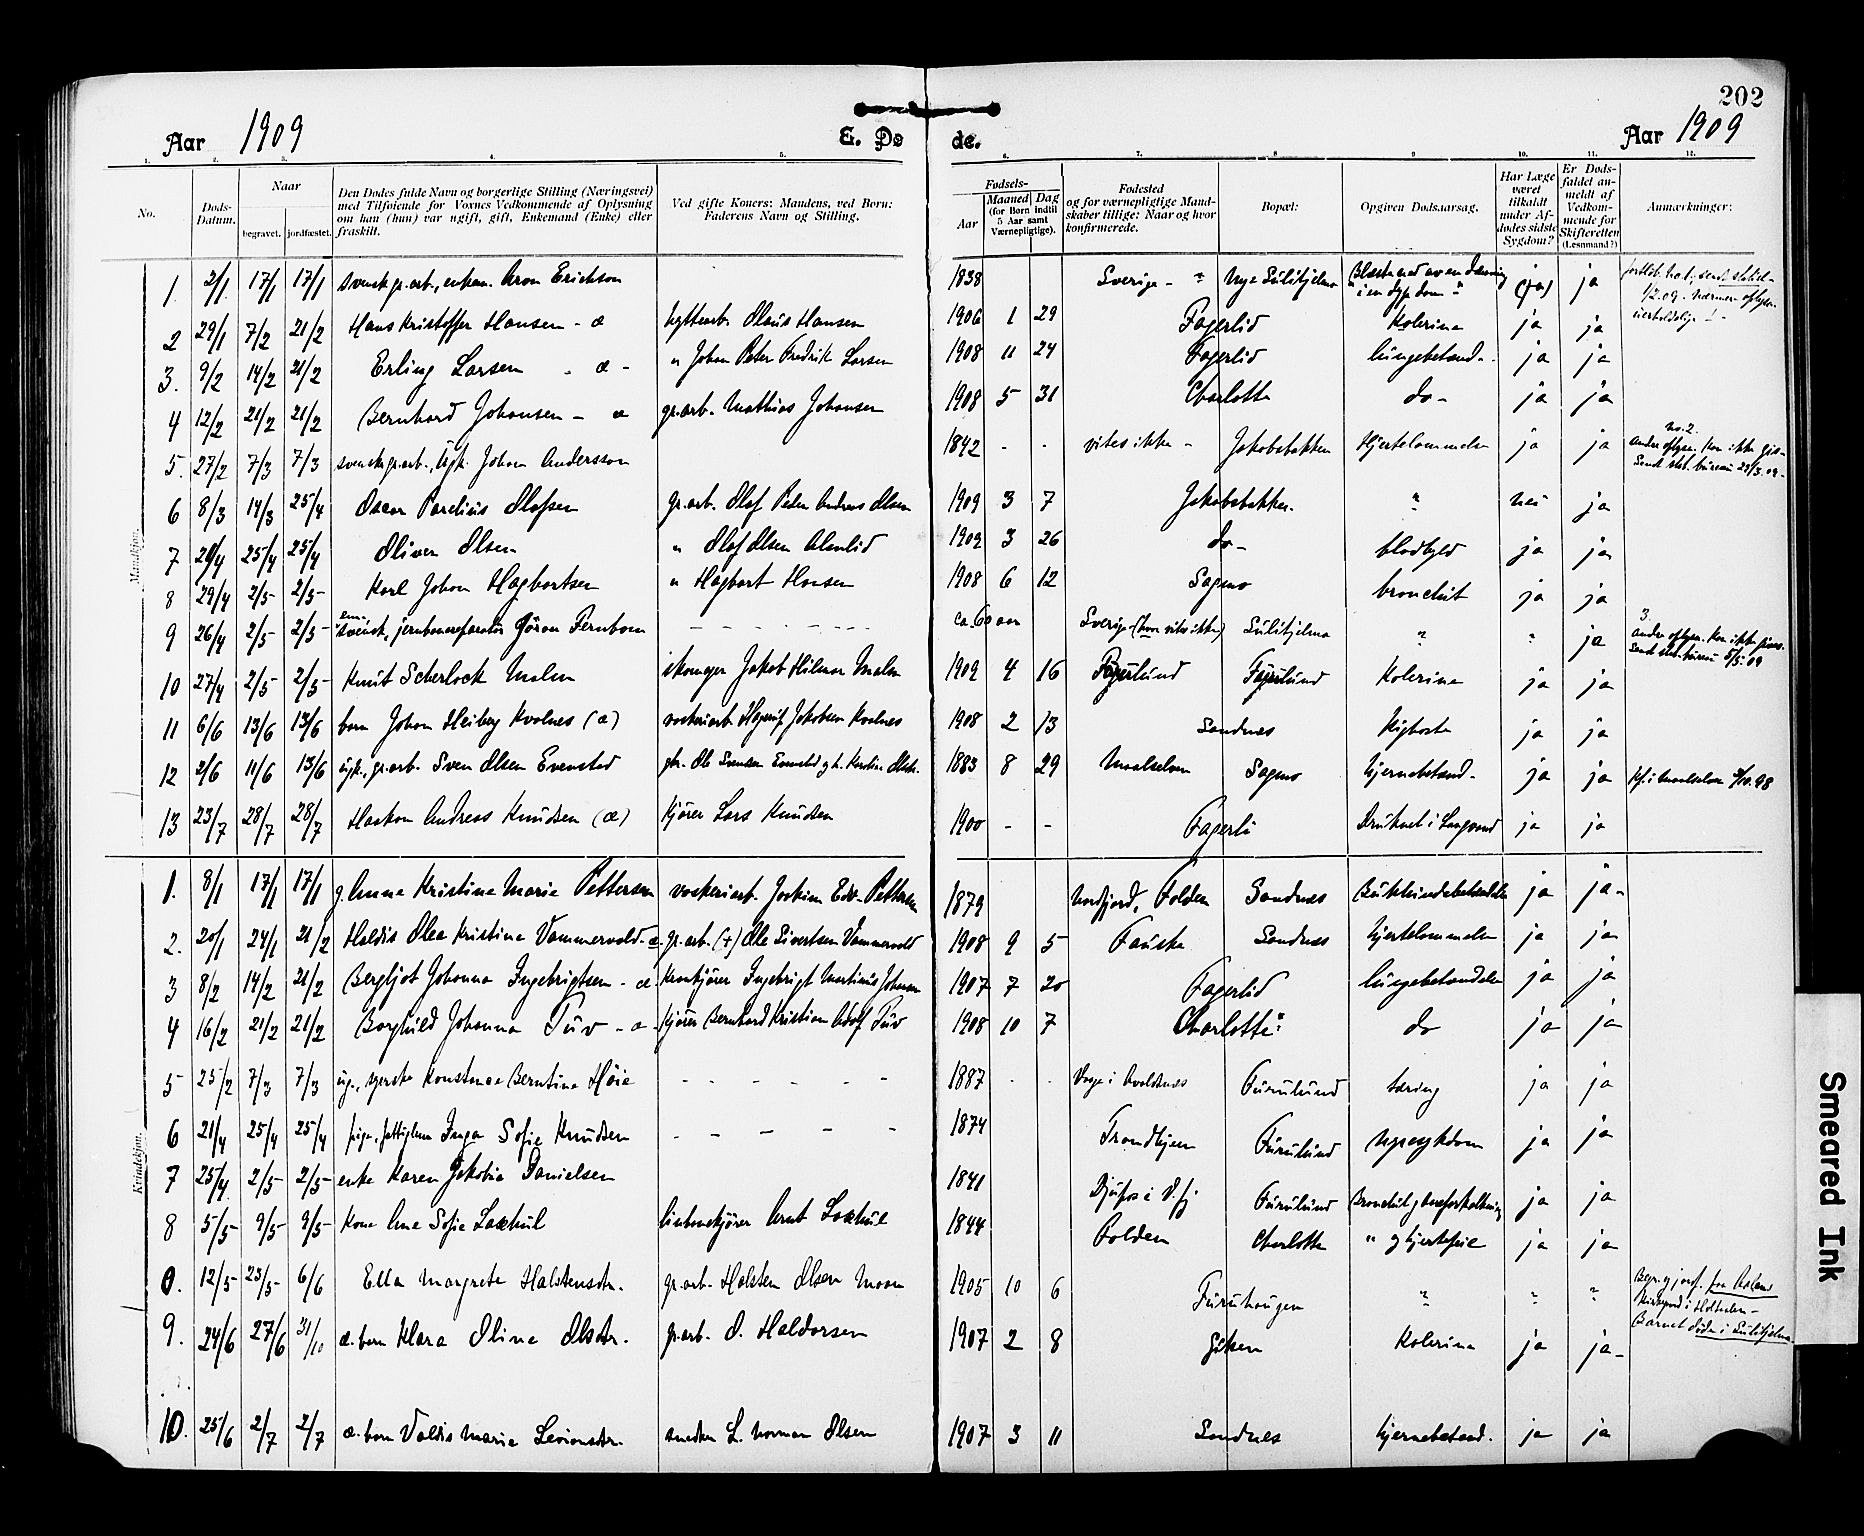 202
Aar 1909
E. Dø
de.
Aar 1909
1. 2. 3. 4. 5. 6. 7. 8 9 10. 11. 12.
No.
Døds-Datum.
Naar
begravet.
jordfæstet.
Den Dødes fulde Navn og borgerlige Stilling (Næringsvei)
med Tilføiende for Voxnes Vedkommende af Oplysning
om han (hun) var ugift, gift, Enkemand (Enke) eller
fraskilt.
Ved gifte Koners: Mandens, ved Børn:
Faderens Navn og Stilling.
Fødsels-
Aar
Maaned
Dag
(for Børn indtil
5 Aar samt
Værnepligtige).
Fødested
og for værnepligtige Mand-
skaber tillige: Naar og hvor
konfirmerede.
Bopæl:
Opgiven Dødsaarsag.
Har Læge
været
tilkaldt
under Af-
dødes sidste
Sygdom?
Er Døds-
faldet an-
meldt af
Vedkom-
mende for
Skifteretten
(Lensmand?)
Anmærkninger:
Mandkjøn.
1. 2/1 17/1 17/1 svensk gr.arb., enkem. Aron Erickson 1838 Sverige - Nye Sulitjelma (ja) ja
2 29/1 7/2 21/2 Hans Kristoffer Hansen - æ hyttearb. Olaus Hansen 1906 1 29 Fagerlid Kolerina ja ja
3. 9/2 14/2 21/2 Erling Larsen - æ - " Johan Peter Fredrik Larsen 1908 11 24 Fagerlid lungebetænd. ja ja
4 12/2 21/2 21/2 Bernhard Johansen - æ gr.arb. Mathias Johansen 1908 5 31 Charlotta do - ja ja
5 27/2 7/3 7/3 svensk gr.arb., Ugk. Johan Andersson 1842 - - vites ikke - Jakobsbakken Hjertelammelse ja ja
6 8/3 14/3 25/4 Oscar Pardius Olafsen gr.arb. Olaf Peter Andreas Olsen 1909 3 7 Jakobsbakken. " nei ja
7 20/4 25/4 25/4 Oliver Olsen " Olaf Olsen Almlid 1909 3 26 do - blodbyld ja ja
8 29/4 2/5 2/5 Karl Johan Hagbartsen " Hagbart Hansen 1908 6 12 Sagmo bronchit ja ja
9 26/4 2/5 2/5 svensk, jernbanereparatør Göran Fernbom - - - ca. 60 aar Sverige (hvor vites ikke) Sulitjelma " " ja
10 27/4 2/5 2/5 Knut Scherlock Malm skomager Jakob Hilmar Malm 1909 4 16 Furulund Furulund Kolerina ja ja
11 6/6 13/6 13/6 barn Johan Heiberg Kvalnes (æ) vaskeriarb. Hagerup Jakobsen Kvalnes 1908 2 13 Sandnes Kighoste ja ja
12 2/6 11/6 13/6 ugk., gr.arb. Sven Olsen Evensted 1883 8 29 Maalselven Sagmo hjernebetænd. ja ja kf. i Maalselven 2/10.98
13 23/7 28/7 28/7 Haakon Andreas Knudsen (æ) kjører Lars Knudsen 1900 - - Fagerli Druknet i Langvand ja ja
Kvindekjøn.
1. 8/1 17/1 17/1 g. Anna Kristina Marie Pettersen vaskeriarb. Joakim Edv. Pettersen 1879 Nordfjord, Folden Sandnes ja ja -
2. 20/1 24/1 21/2 Haldis Olea Kristina Vammervold - æ. gr.arb. (+) Ole Sivertsen Vammervold 1908 9 5 Fauske Sandnes hjertelammelse ja ja
3 8/2 14/2 21/2 Bergljot Johanna Ingebrigtsen - æ. krankjører Ingebrigt Martinus Johansen 1907 7 20 Fagerlid lungebetændelse ja ja
4 16/2 21/2 21/2 Borghild Johanna Tuv - æ - kjører Bernhard Kristian Adolf Tuv 1908 10 7 Charlotta do ja ja
5 25/2 7/3 7/3 ug., syerske Konstance Berntina Høie - - - - - 1887 - - Furulund tæring ja ja
6 21/4 25/4 25/4 pige, fattiglem Inga Sofie Knudsen - - - - - 1874 Trondhjem Furulund nyresykdom ja ja
7 25/4 2/5 2/5 enke Karen Jakobia Danielsen 1841 Furulund ja ja
8 5/5 9/5 9/5 kone Ane Sofie Laxhul linbanekjører Arnt Laxhul 1844 Folden Charlotta " og hjertefeil ja ja
0. 12/5 23/5 6/6 Ella Margrete Halstensdtr. gr.arb. Halsten Olsen Moan 1905 10 6 Furuhaugen " " "
Begr. og jordf. fra Aalens
Kirkegaard i Holtaalen -
Barnet døde i Sulitjelma
9. 24/6 27/6 31/10 æ. barn Klara Olina Olsdtr. gr.arb. O. Haldorsen 1907 2 8 Giken Kolerina ja ja -
10. 25/6 2/7 2/7 æ. barn Valdis Marie Levionsdtr. snedker L. Norman Olsen 1907 3 11 Sandnes hjernebetænd. ja ja
Smeared Ink